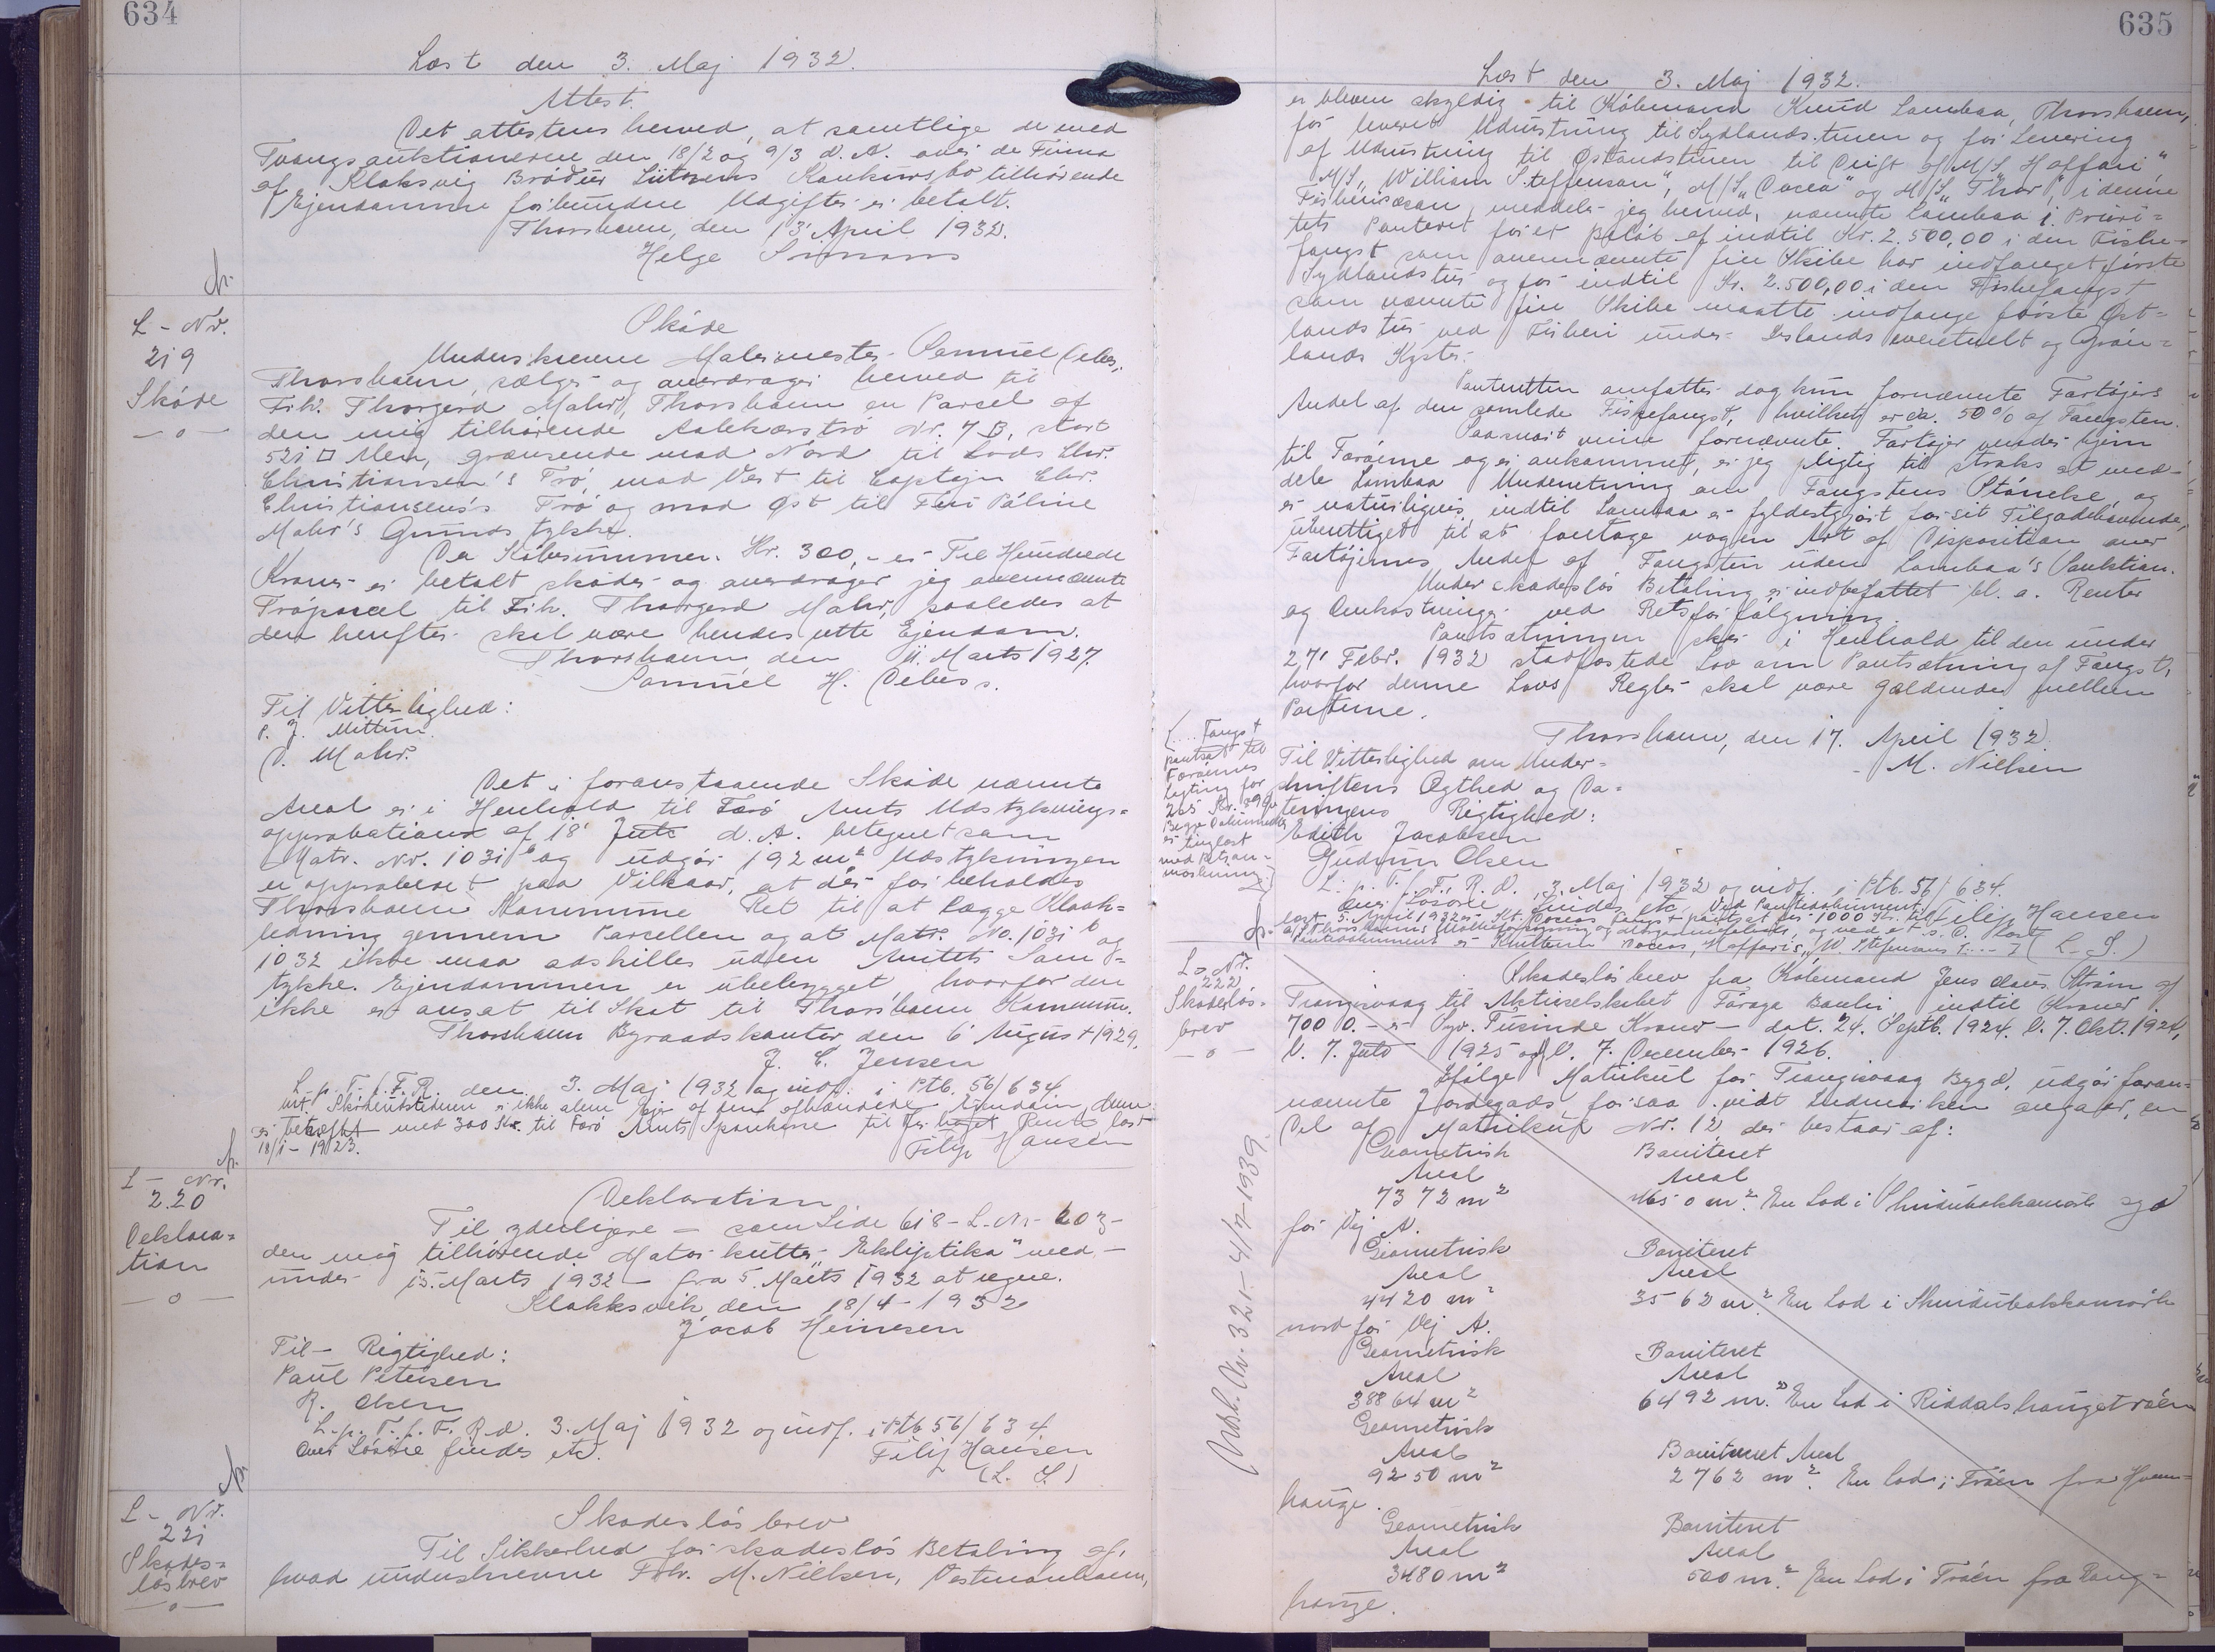 634
Læst den 3. Maj 1932.
Attest.
Det attesteres herved, at samtlige de med
Tvangsauktionerne den 18/2 og 9/3 d. A. over de Firma
af Klaksvig Brødr. Konkursbo tilhørende
Ejendomme forbundne Udgifter er betalt.
Thorshavn, den 13. April 1932.
Helge
L - Nr.
219
Skøde
- o -
Skøde
Underskrevne Malermester Samuel Debes,
Thorshavn, sælger og overdrager herved til
Frk. Thorgerd Mohr, Thorshavn en Parcel af
den mig tilhørende Trø Nr. 7 B, stort
521 □ Alen, grænsende mod Nord til Lods Chr.
Christiansen's Trø, mod Vest til Captajn Chr.
Christiansens's Trø og mod Øst til Fru Páline
Mohr's Grundstykke.
Da Købesummen Kr. 300,- er Tre Hundrede
Kroner er betalt skøder og overdrager jeg ovennævnte
Trøparcel til Frk. Thorgerd Mohr, saaledes at
den herefter skal være hendes rette Ejendom.
Thorshavn, den 11. Marts 1927.
Samuel H. Debess.
Til Vitterlighed:
P. J. Mittún.
D. Mohr.
Det i foranstaaende Skøde nævnte
Areal er i Henhold til Færø Amts Udstyknings-
approbation af 18' Juli d. A. betegnet som
Matr. Nr. 1031 b og udgør 192 m² Udstykningen
er approberet paa Vilkaar, at der forbeholdes
Thorshavn Kommune Ret til at lægge Kloak-
ledning gennem Parcellen og at Matr. No. 1031 b og
1032 ikke maa adskilles uden Amtets Sam-
tykke. Ejendommen er ubebygget, hvorfor den
ikke er ansat til Skat til Thorshavn Kommune.
Thorshavn Byraadskontor, den 6' August 1929.
J. C. Jensen
L. p. T. f. F. R. den 3. Maj 1932 og indf. i Ptb. 56/634
Skødeudstederen er ikke alene Ejer af den afhændede Ejendom, denne
er behæftet med 300 Kr. til Færø Amts Sparekasse læst
18/1 - 1923. Filip Hansen
L - Nr.
220
Deklara-
tion
- o -
Deklaration
Til yderligere - som Side 618 - L. Nr. 203 -
den mig tilhørende Motorkutter "Ekliptika" med -
under 15. Marts 1932 - fra 5. Marts 1932 at regne.
Klakksvik, den 18/4 - 1932
Jacob Heinesen
Til - Rigtighed:
Paul Petersen
R. Olsen
L. p. T. f. F. R. d. 3. Maj 1932 og indf. i Ptb 56/634
Over Løsøre findes etc. Filip Hansen
(L. S.)
L - Nr.
221
Skades-
løsbrev
- o -
Skadesløsbrev
Til Sikkerhed for skadesløs Betaling af,
hvad underskrevne Frk. M. Nielsen, Vestmanhavn,
635
Læst den 3. Maj 1932.
er bleven skyldig til Købmand Knud Lambaa, Thorshavn,
for leveret Udrustning til Sydlandsturen og for Levering
af Udrustning til Østlandsturen til Drift af M/S "Haffari"
M/S "William Steffensen", M/S "Cocea" og M/S "Thor", i denne
Fiskerisæson, meddeler jeg herved, nævnte Lambaa 1. Priori-
tets Panteret for et Beløb af indtil Kr. 2.500,00 i den Fiske-
fangst som ovennævnte fire Skibe har indfanget første
Sydlandstur og for indtil Kr. 2.500,00 i den Fiskefangst
som nævnte fire Skibe maatte indfange første Øst-
landstur ved Fiskeri under Islands eventuelt og Grøn-
lands Kyster.
Panteretten omfatter dog kun fornævnte Fartøjers
Andel af den samlede Fiskefangst, hvilken er ca. 50% af Fangsten.
Saasnart mine fornævnte Fartøjer vender hjem
til Færøerne og er ankommet, er jeg pligtig til straks at med-
dele Lambaa Underretning om Fangstens Størrelse, og
er naturligvis indtil Lambaa er fyldestgjort for sit Tilgodehavende,
uberettiget til at foretage nogen Art af Disposition over
Fartøjernes Andel af Fangsten uden Lambaa's Sanktion.
Under skadesløs Betaling er indbefattet bl. a. Renter
og Omkostninger ved Retsforfølgning.
Pantsætningen sker i Henhold til den under
27' Febr. 1932 stadfæstede Lov om Pantsætning af Fangst,
hvorfor denne Lovs Regler skal være gældende mellem
Parterne.
Thorshavn, den 17. April 1932.
M. Nielsen
Til Vitterlighed om Under-
skriftens Ægthed og Da-
teringens Rigtighed:
Edith Jacobsen
Gudrun Olsen
Fangst
pantsat til
Færøernes
Lagting for
265 Kr.
Begge Dokumenter
er tinglæst
med Retsan-
mærkning.
L. p. T. f. F. R. d. 3. Maj 1932 og indf. i Ptb. 56/634.
Over Løsøre findes etc. Ved Pantedokument
læst 5. April 1932 er Kt. Coceas Fangst pantsat for 1000 Kr. til Filip Hansen
(L. S.)
L - Nr.
222
Skadesløs-
brev
- o -
Skadesløsbrev fra Købmand Jens Olaus Strøm af
Trangisvaag til Aktieselskabet Føroya Banki indtil Kroner
7000.- er Syv Tusinde Kroner - dat. 24. Septb. 1924. l. 7. Okt. 1924,
l. 7. Juli 1925 og l. 7. December 1926.
Ifølge Matrikul for Trangisvaag Bygd, udgør foran-
nævnte Jordegods, forsaavidt Indmarken angaar, en
Del af Matrikul Nr. 12, der bestaar af:
Geometrisk Boniteret
Areal Areal
7372 m² 1650 m². En Lod i syd
for Vej A.
Geometrisk Boniteret
Areal Areal
4420 m² 3562 m². En Lod i
nord for Vej A.
Geometrisk Boniteret
Areal Areal
38864 m² 6492 m². En Lod i
Geometrisk
Areal Boniteret Areal
9250 m² 2762 m². En Lod i Trøen fra
hauge.
Geometrisk Boniteret
Areal Areal
3480 m² 500 m². En Lod i Trøen fra
hauge.
Nr. 321 - 4/7 - 1939.